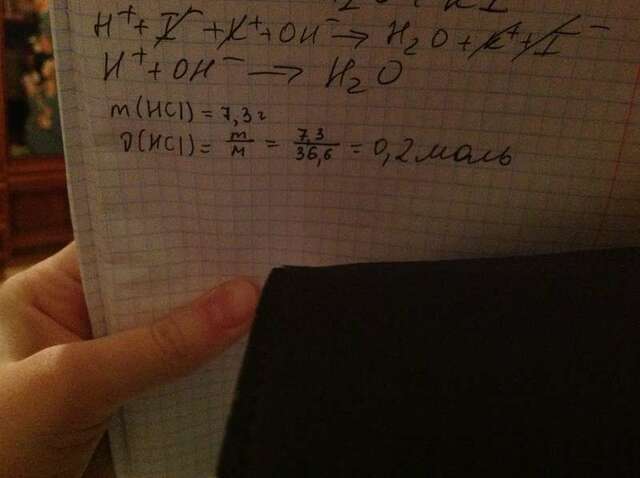 H⁺ + I⁻ + K⁺ + OH⁻ → H₂O + K⁺ + I⁻
H⁺ + OH⁻ → H₂O
m(HCl) = 7,3 г
ν(HCl) = m/M = 7,3/36,6 = 0,2 моль